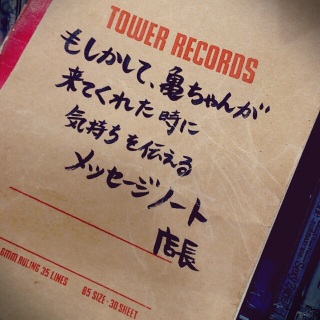 TOWER RECORDS
もしかして、亀ちゃんが
来てくれた時に
気持ちを伝える
メッセージノート
店長
6MM RULING 35 LINES
B5 SIZE・30 SHEET